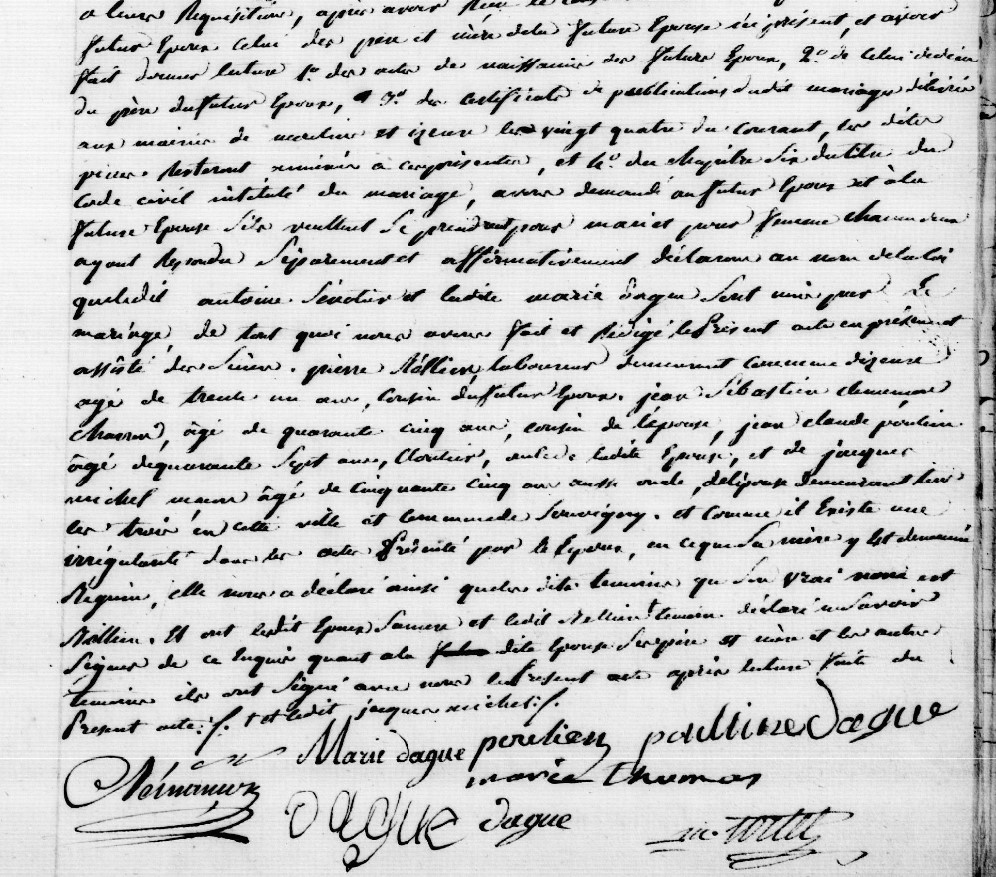 a leurs Requisition, après avoir
futur Epoux celui des pere et mère dela future Epouse ici présent, et avoir
fait donner lecture 1o. des actes de naissance des future Epoux, 2o. de celui de décès
du père du futur Epoux, 3o. des certificats de publications dudit mariage délivrés
aux mairies de et izeure le vingt quatre du courant, les dites
pieces resteront annéxées à ces présentes, et 4o. du Chapitre Six du titre du
Code civil intitulé du mariage, avons demandé au futur Epoux et à la
future Epouse s'ils veullent Se prendre pour mari et pour femme chacun deux
ayant Repondu Séparement et affirmativement déclarons au nom de la loi
queledit antoine et ladite marie dague Sont unis par Le
mariage, de tout quoi nous avons fait et Rédigé le Présent acte en présence et
assisté des Sieurs pierre Nollien laboureur demeurant Commune dizeure
agé de trente un ans, Cousin du futur Epoux. jean Sébastien
âgé de quarante cinq ans, cousin de l'épouse, jean claude
âgé de quarante Sept ans, Cloutier, oncle de ladite Epouse, et de jacques
michel âgé de cinquante cinq ans aussi oncle, del'épouse demeurant tous
les trois en cette ville et Commune de Souvigny. et comme il Existe une
irrégularité dans les actes Présenté par le Epoux, en ce que Sa mère y est denommé
Réquin, elle nous a déclaré ainsi queles dits temoins que Son vrai nom est
Nollien. Et ont ledit Epoux Sa mere et ledit Nollien temoin déclaré ne Savoir
Signer de ce Enquis quant a la dite Epouse Ses père et mère et les autres
temoins ils ont Signé avec nous le Présent acte après lecture faite du
Present acte. ./. † et ledit jacques michel ./.
Marie dague poulien pauline Dague
marie thomas
DAGUE dague